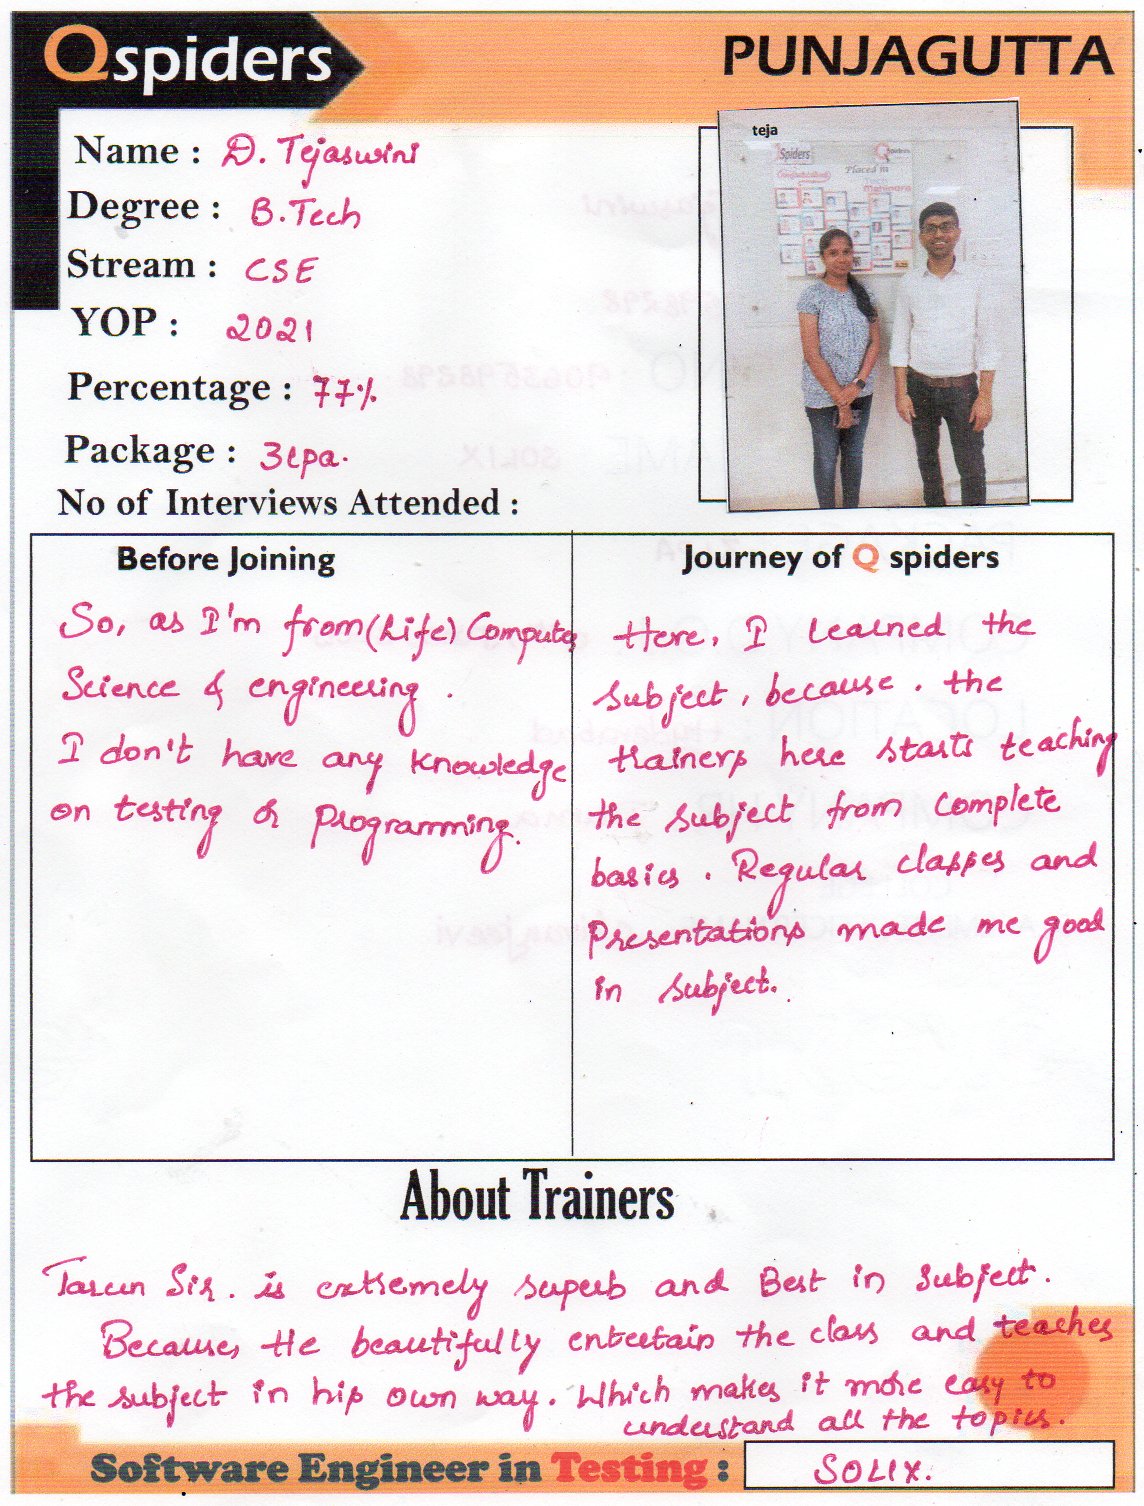 Qspiders
PUNJAGUTTA
Name : D. Tejaswini
Degree : B.Tech
Stream : CSE
YOP : 2021
Percentage : 77%
Package : 3lpa.
No of Interviews Attended :
teja
Spiders
Qspiders
Placed in
Mahindra
Before Joining
So, as I'm from (Life) Computer
Science & engineering .
I don't have any knowledge
on testing & programming.
Journey of Q spiders
Here, I learned the
subject, because . the
trainers here starts teaching
the subject from complete
basics . Regular classes and
Presentations made me good
in subject.
About Trainers
Tarun Sir . is extremely superb and Best in subject.
Because, He beautifully entertain the class and teaches
the subject in his own way. Which makes it more easy to
understand all the topics.
Software Engineer in Testing : SOLIX.